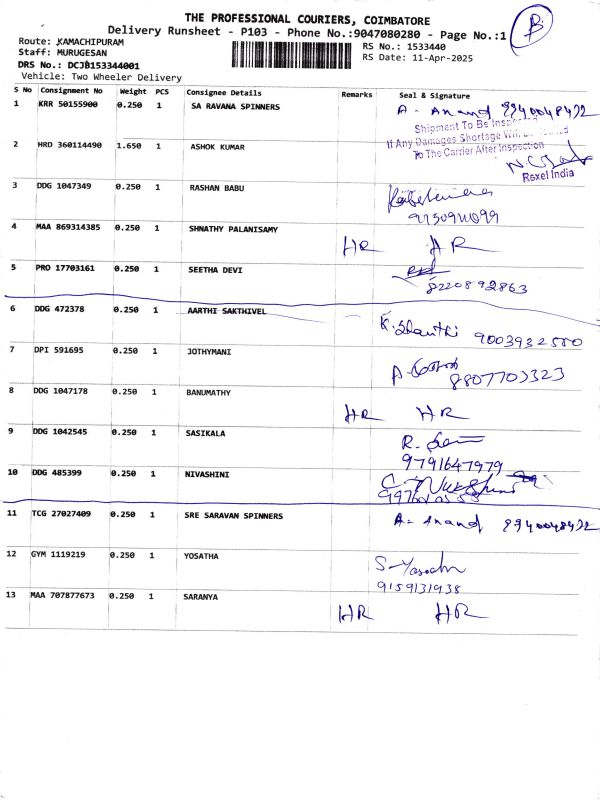 THE PROFESSIONAL COURIERS, COIMBATORE
Delivery Runsheet - P103 - Phone No.:9047080280 - Page No.:1 B
Route: KAMACHIPURAM
RS No.: 1533440
Staff: MURUGESAN
RS Date: 11-Apr-2025
DRS No.: DCJB153344001
Vehicle: Two Wheeler Delivery
S No Consignment No Weight PCS Consignee Details Remarks Seal & Signature
1 KRR 50155900 0.250 1 SA RAVANA SPINNERS A- Anand 8940048492
Shipment To Be Inspected
If Any Damages Shortage Will be
To The Carrier After Inspection
2 HRD 360114490 1.650 1 ASHOK KUMAR
Rexel India
3 DDG 1047349 0.250 1 RASHAN BABU
4 MAA 869314385 0.250 1 SHNATHY PALANISAMY HR HR
5 PRO 17703161 0.250 1 SEETHA DEVI
8220892863
6 DDG 472378 0.250 1 AARTHI SAKTHIVEL K. Shanthi 9003932500
7 DPI 591695 0.250 1 JOTHYMANI
8807703323
8 DDG 1047178 0.250 1 BANUMATHY HR HR
9 DDG 1042545 0.250 1 SASIKALA
9791647979
10 DDG 485399 0.250 1 NIVASHINI
11 TCG 27027409 0.250 1 SRE SARAVAN SPINNERS A- Anand 8940048492
12 GYM 1119219 0.250 1 YOSATHA S-Yasodha
9159131938
13 MAA 707877673 0.250 1 SARANYA HR HR